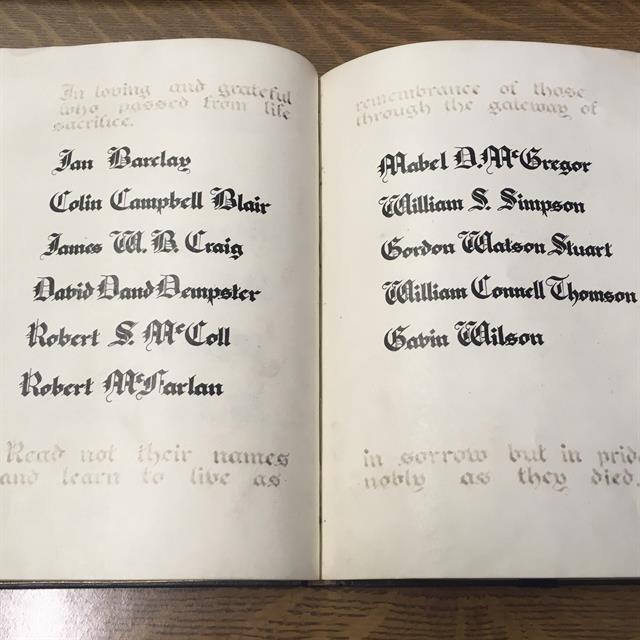 In loving and grateful remembrance of those
who passed from life through the gateway of
sacrifice.
Ian Barclay
Colin Campbell Blair
James W. B. Craig
David Dand Dempster
Robert S. McColl
Robert McFarlan
Mabel D. McGregor
William S. Simpson
Gordon Watson Stuart
William Connell Thomson
Gavin Wilson
Read not their names in sorrow but in prid
and learn to live as nobly as they died.